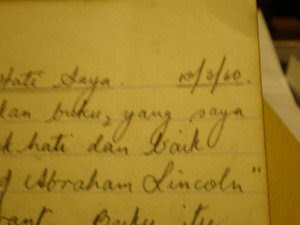 Hati Saya. 10/8/60.
dan buku, yang saya
hati dan baik
Abraham Lincoln"
Buku itu